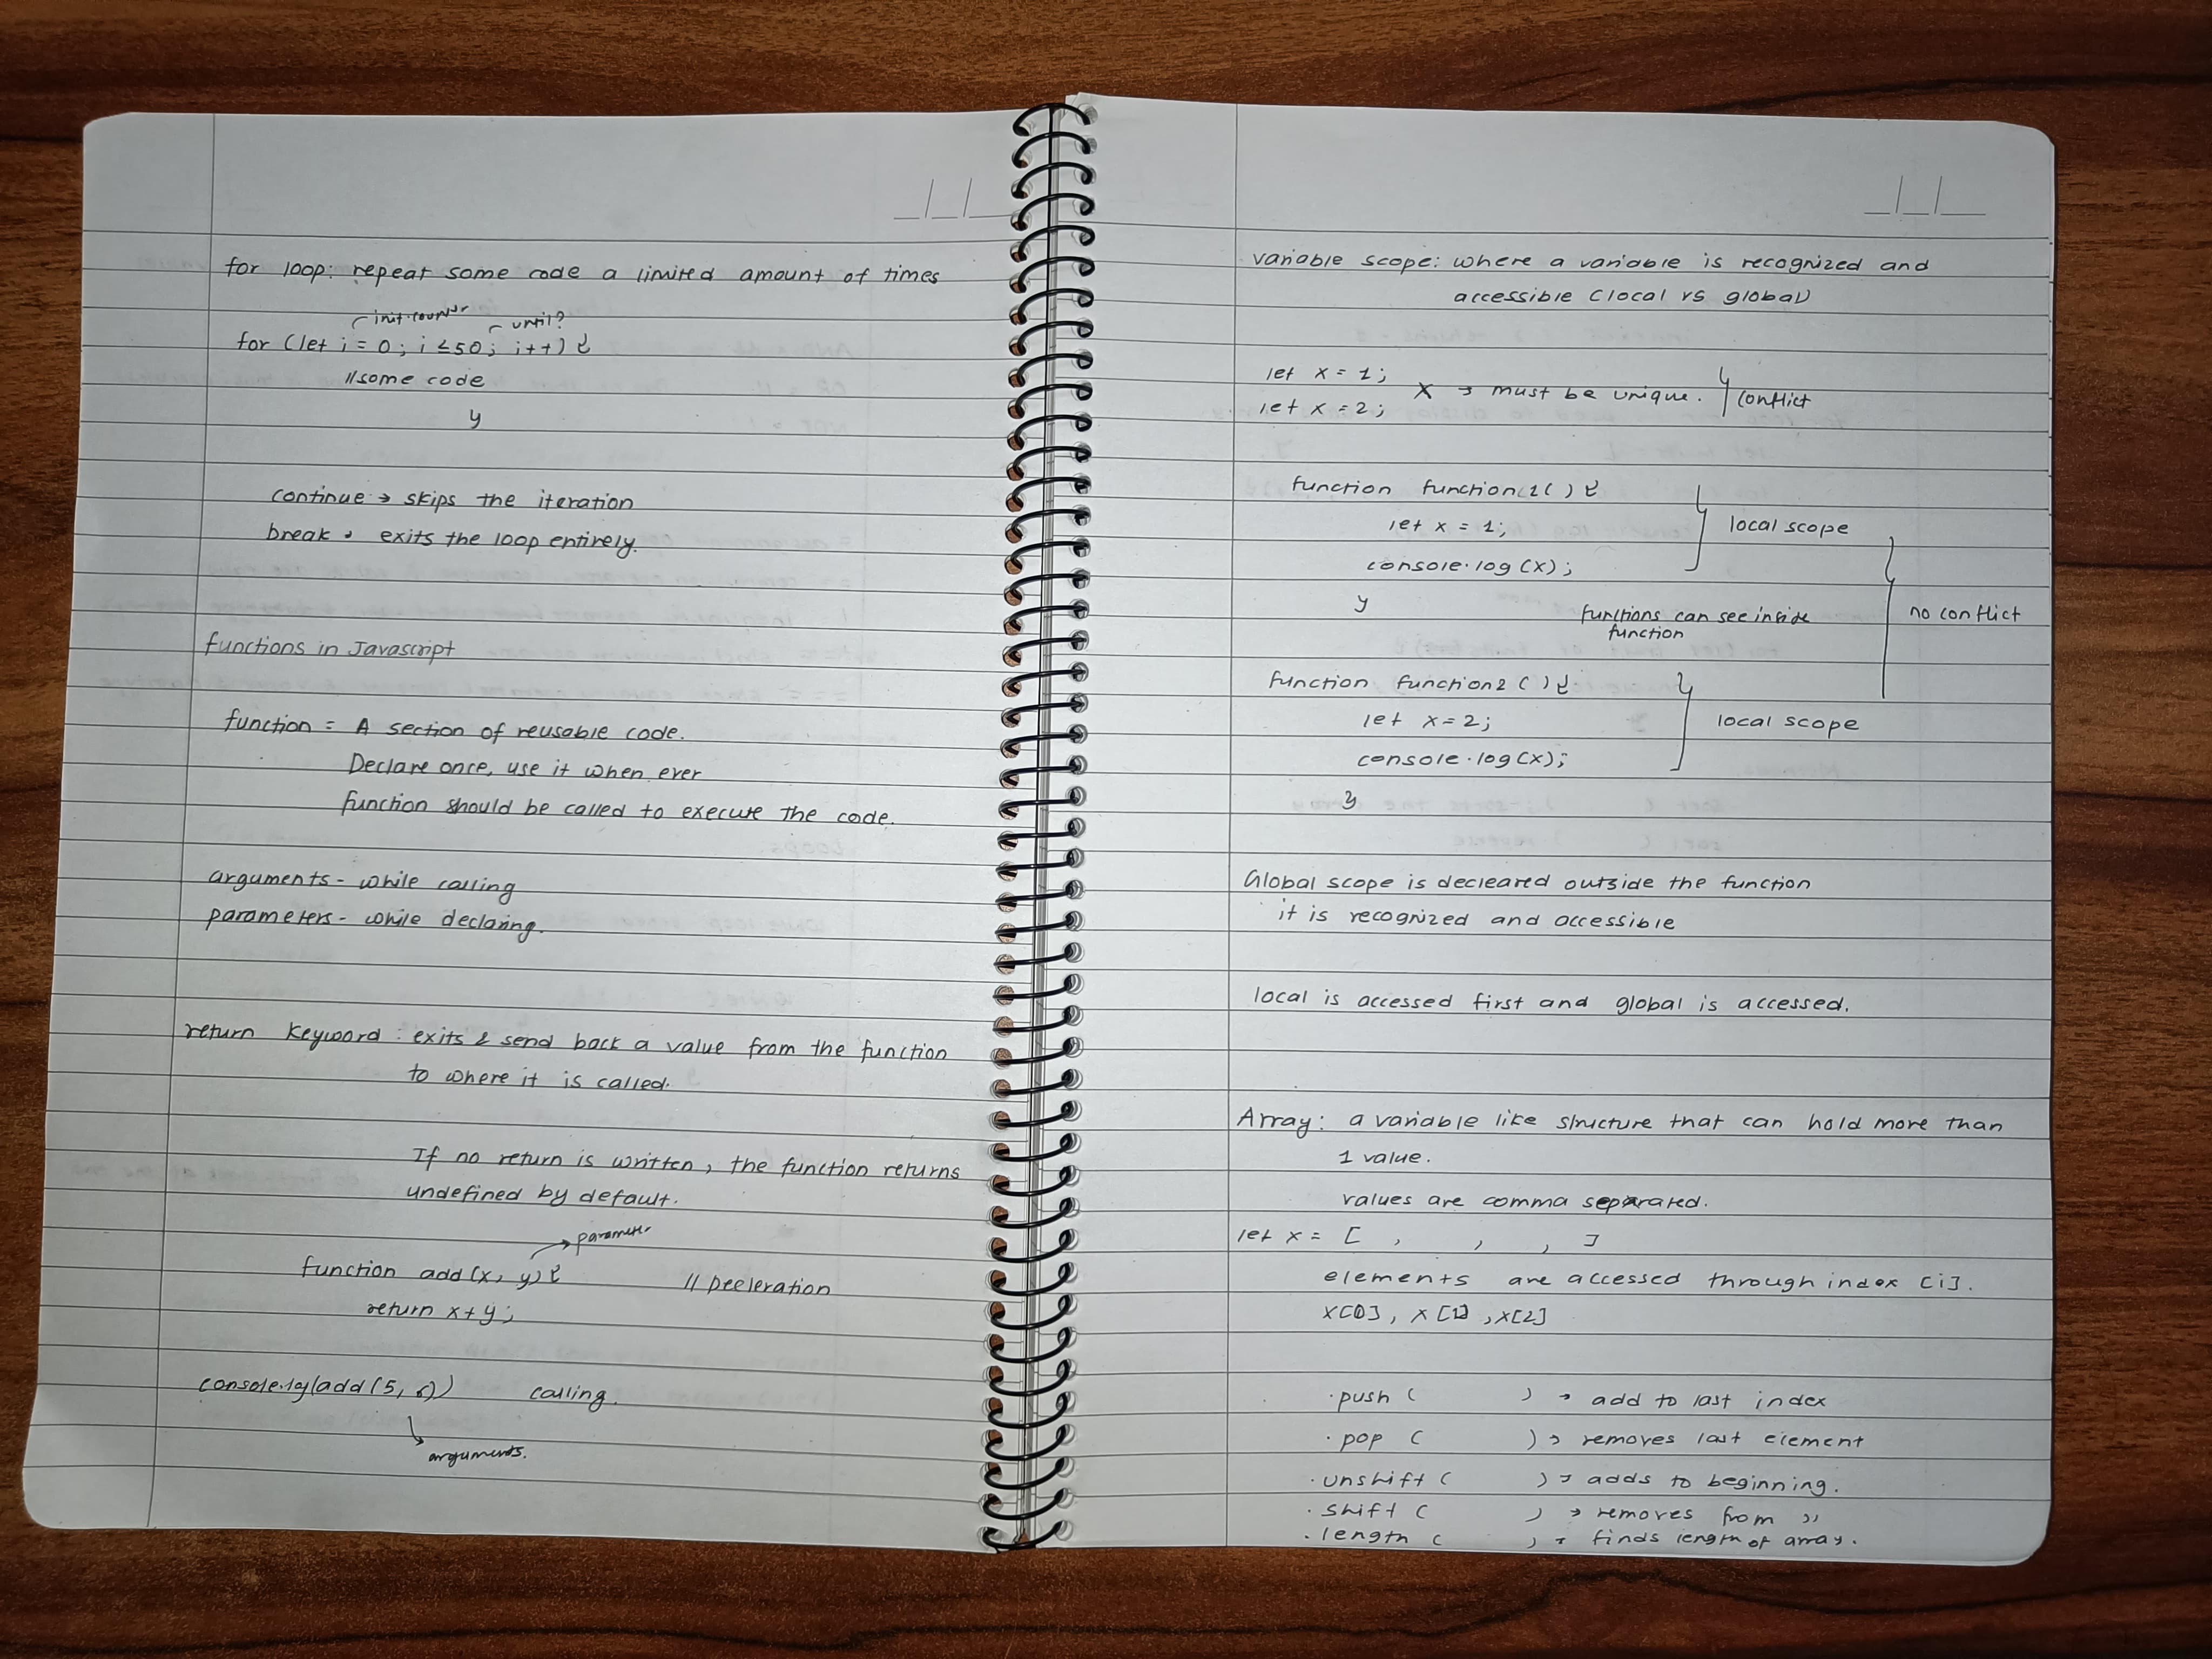 for loop: repeat some code a limited amount of times
init counter
until?
for (let i = 0; i ≤ 50; i++) {
//some code
}
continue → skips the iteration
break → exits the loop entirely.
functions in Javascript
function = A section of reusable code.
Declare once, use it when ever
function should be called to execute the code.
arguments - while calling
parameters - while declaring.
return keyword : exits & send back a value from the function
to where it is called.
If no return is written, the function returns
undefined by default.
→ parameter
function add(x, y) { // Decleration
return x+y;
console.lg(add(5, 6)) calling.
arguments.
__/__/__
variable scope: where a variable is recognized and
accessible (local vs global)
let x = 1;
let x = 2; X → must be unique. } conflict
function function1( ) {
let x = 1; local scope
console.log(x);
}
functions can see inside
function
no conflict
function function2 ( ) {
let x = 2; local scope
console.log(x);
}
Global scope is decleared outside the function
it is recognized and accessible
local is accessed first and global is accessed.
Array: a variable like structure that can hold more than
1 value.
values are comma separated.
let x = [ , , , ]
elements are accessed through index [i].
x[0], x[1], x[2]
.push ( ) → add to last index
.pop ( ) → removes last element
.unshift ( ) → adds to beginning.
.shift ( ) → removes from "
.length ( ) → finds length of array.